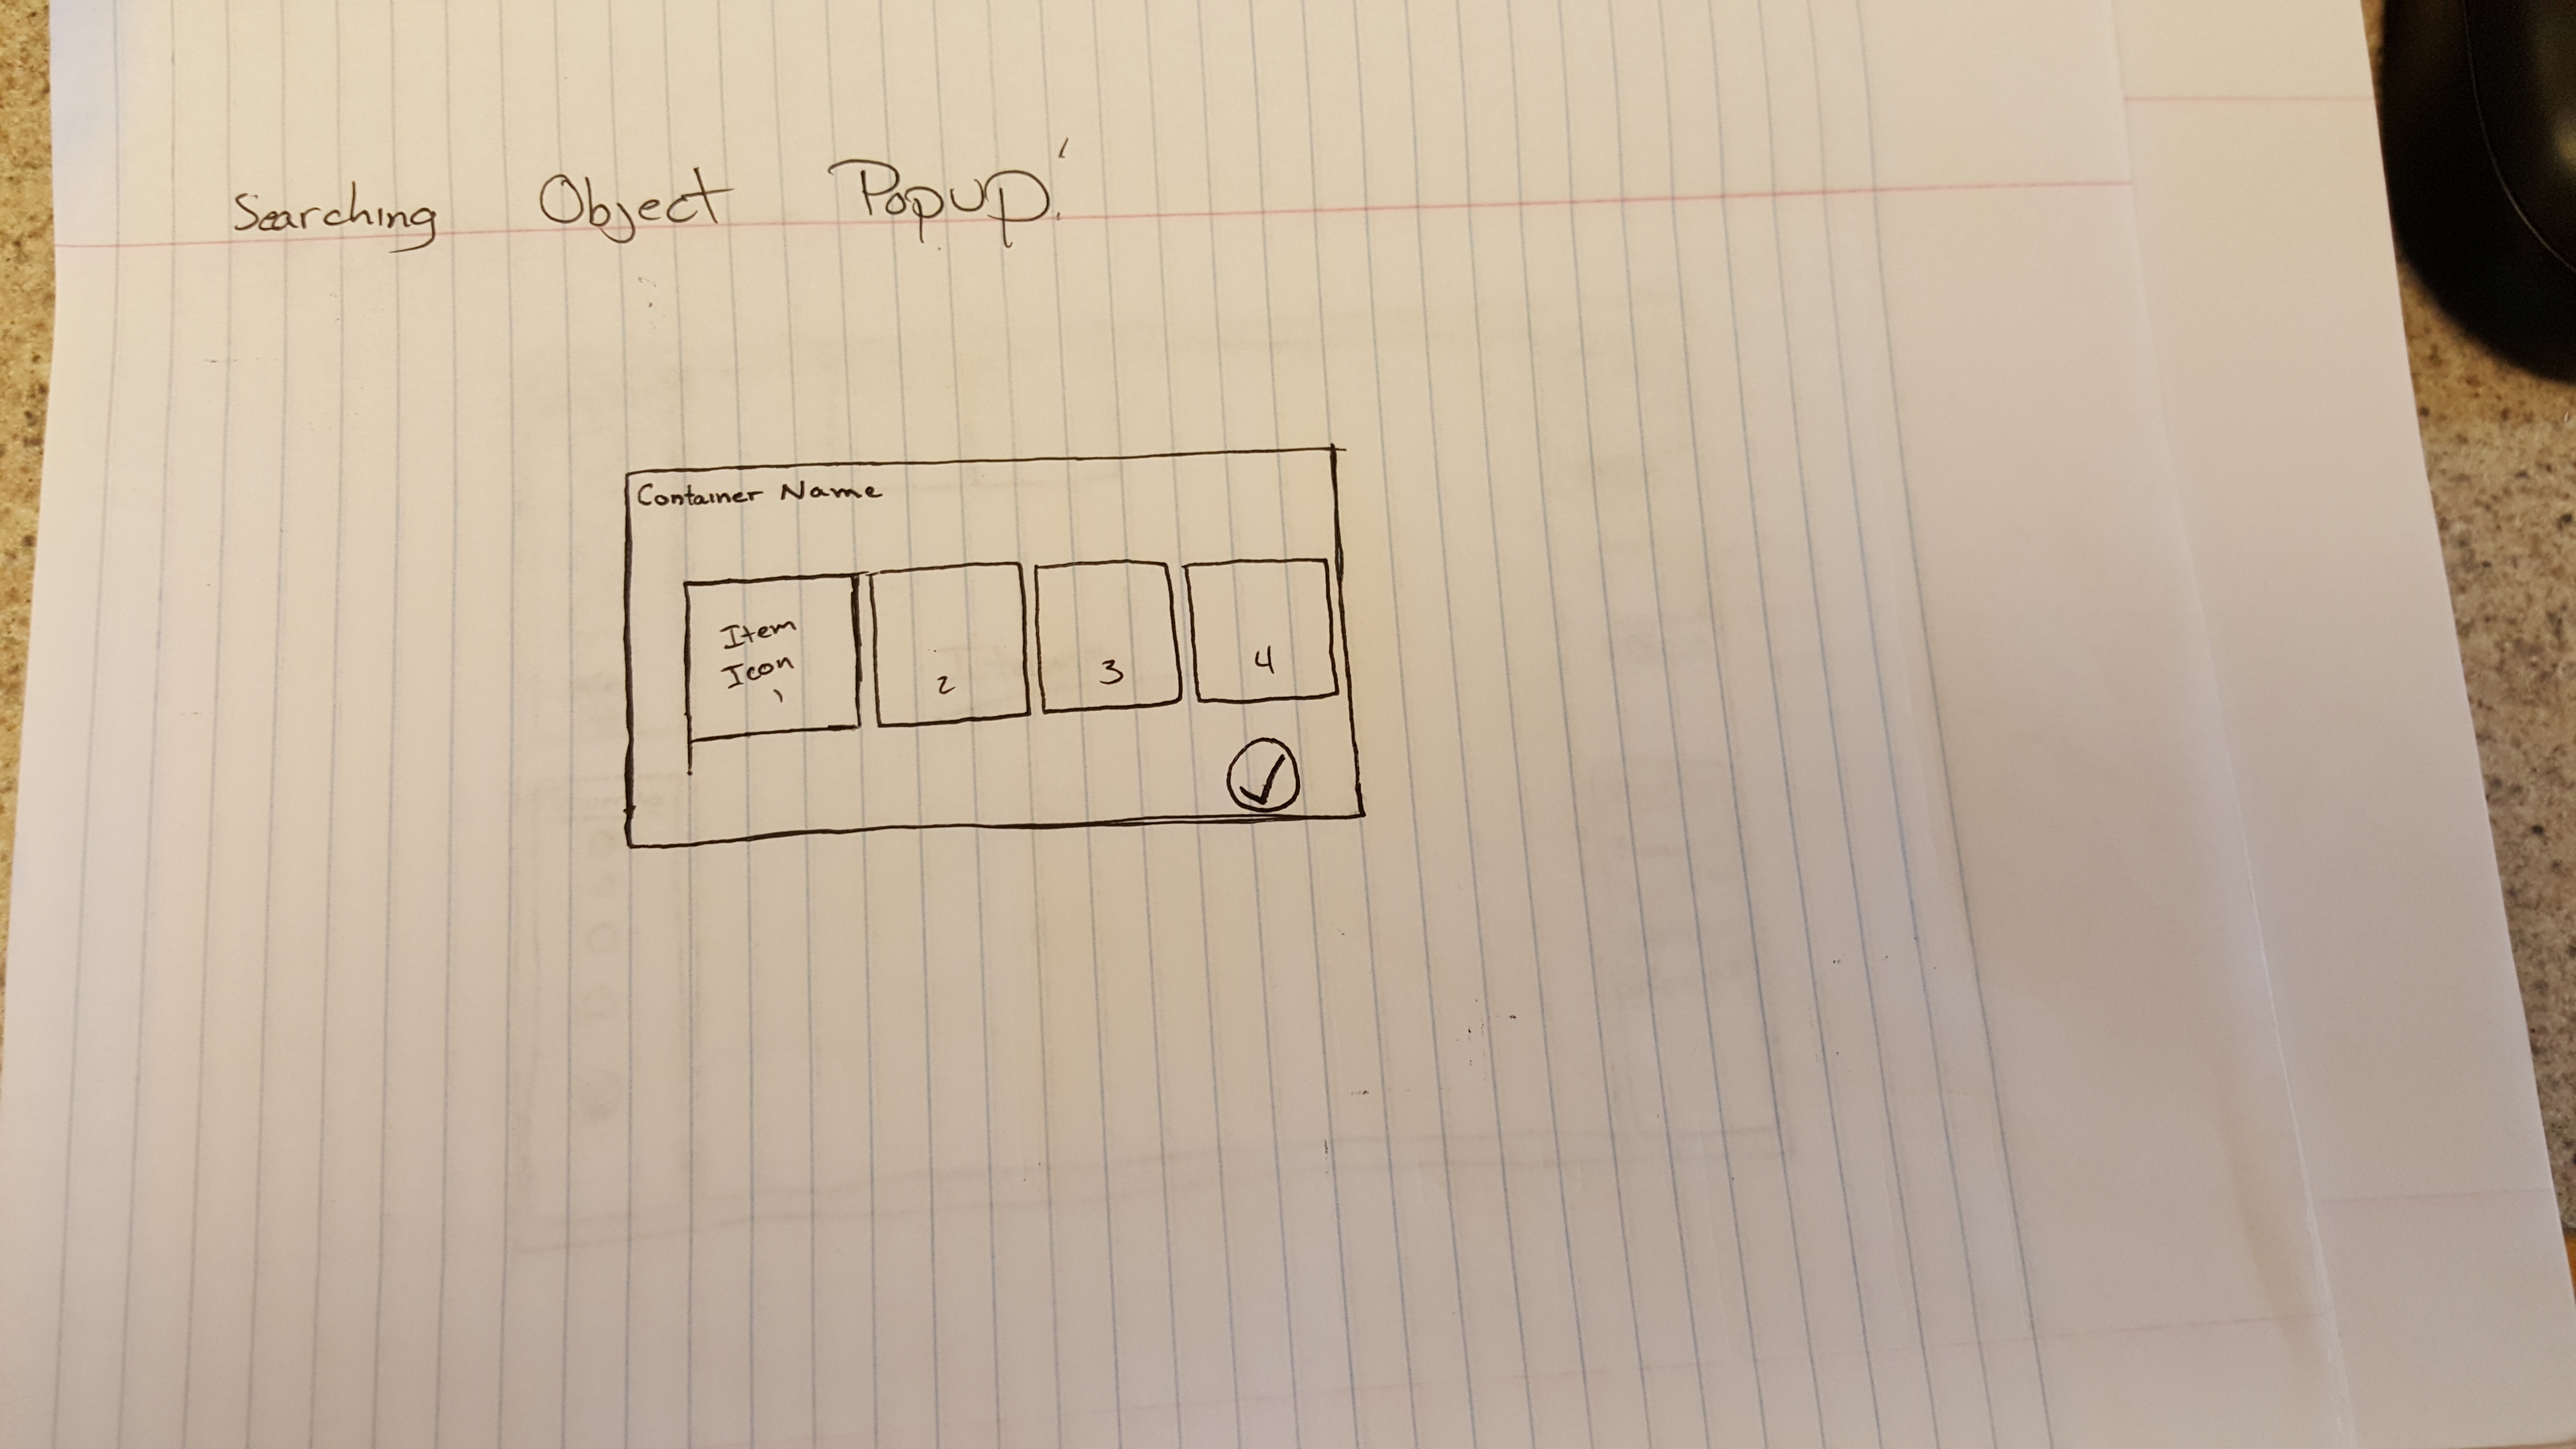 Searching Object Popup!
Container Name
Item
Icon
1
2
3
4